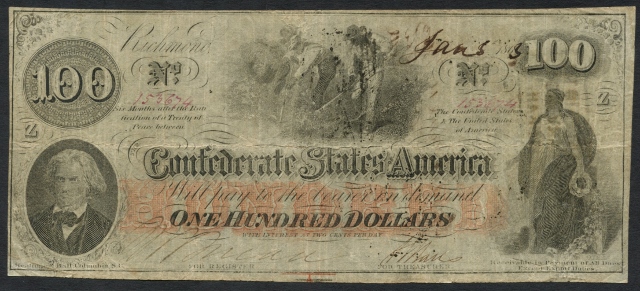 100
Richmond,
Jany 8
100
No
No
Six Months after the Rati
fication of a Treaty of
Peace between
The Confederate States
& The United States
of America
Z
Z
Confederate States America
Will pay to the bearer on demand
ONE HUNDRED DOLLARS
WITH INTEREST AT TWO CENTS PER DAY
FOR REGISTER
FOR TREASURER
Receivable in Payment of All Dues
Except Export Duties